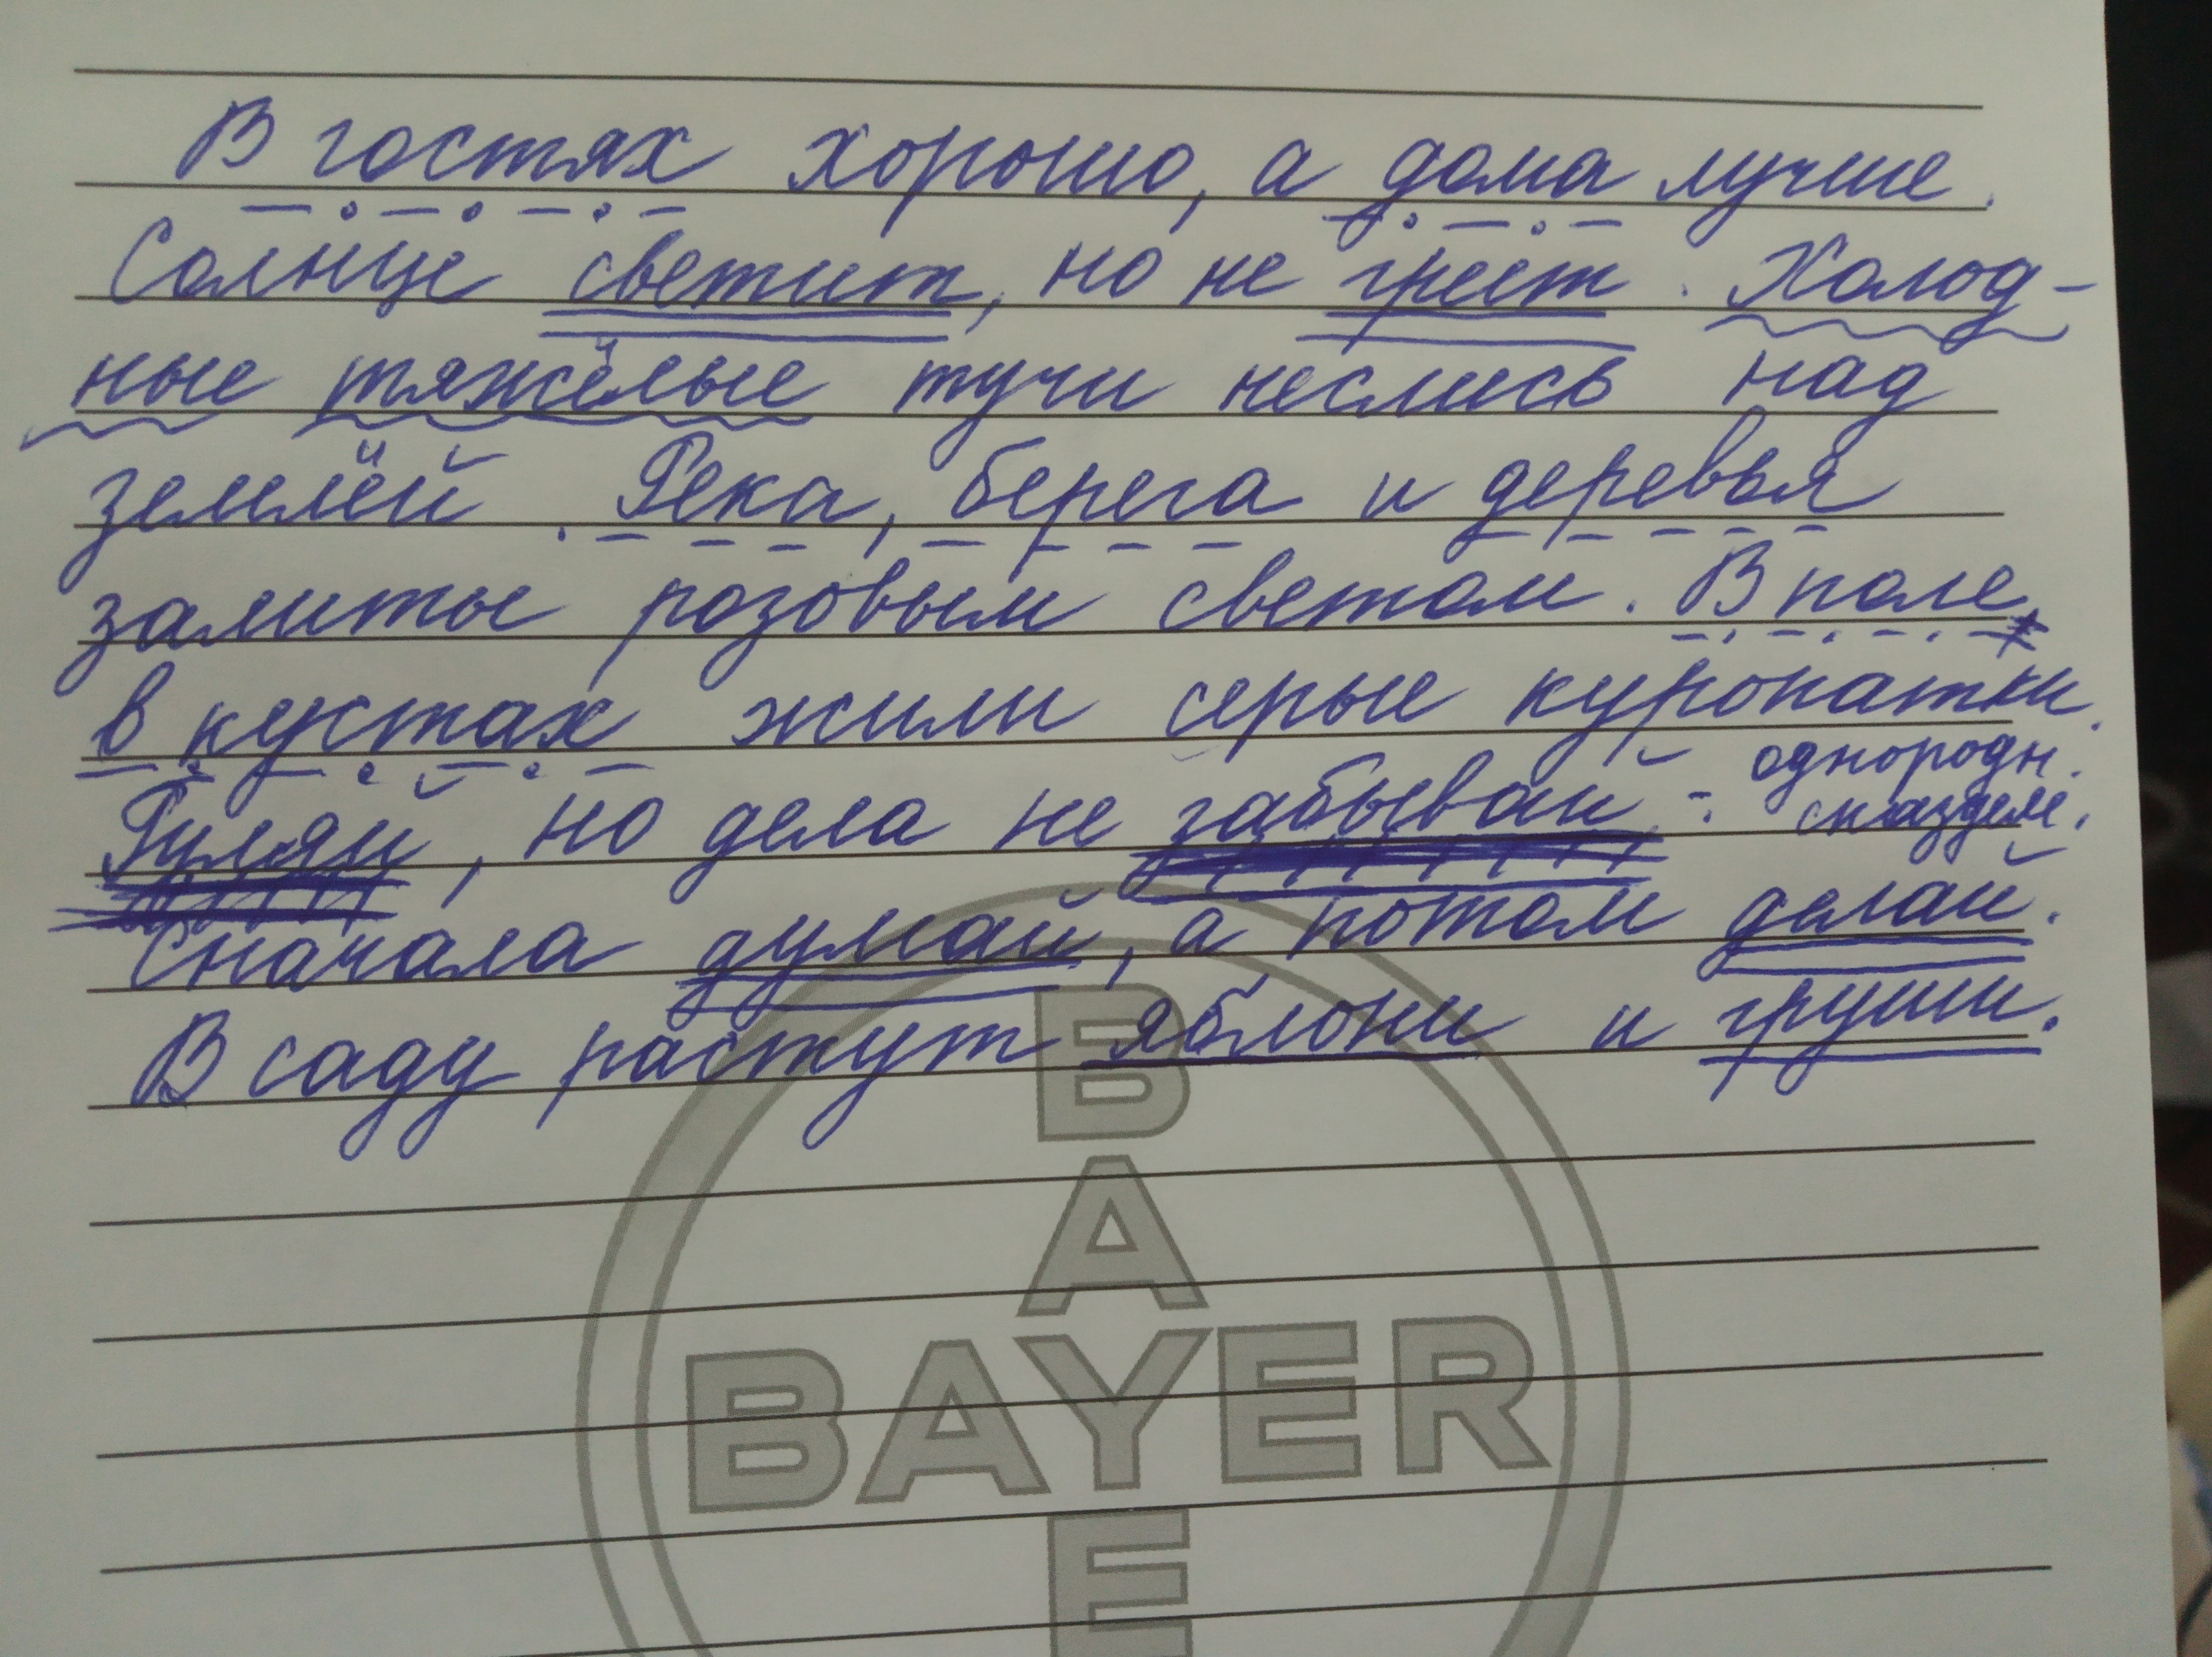 В гостях хорошо, а дома лучше.
Солнце светит, но не греет. Холод-
ные тяжёлые тучи неслись над
землёй. Река, берега и деревья
залиты розовым светом. В поле,
в кустах жили серые куропатки.
Гуляй, но дела не забывай. - однородн.
сказуем.
Сначала думай, а потом делай.
В саду растут яблони и груши.
B
A
BAYER
E